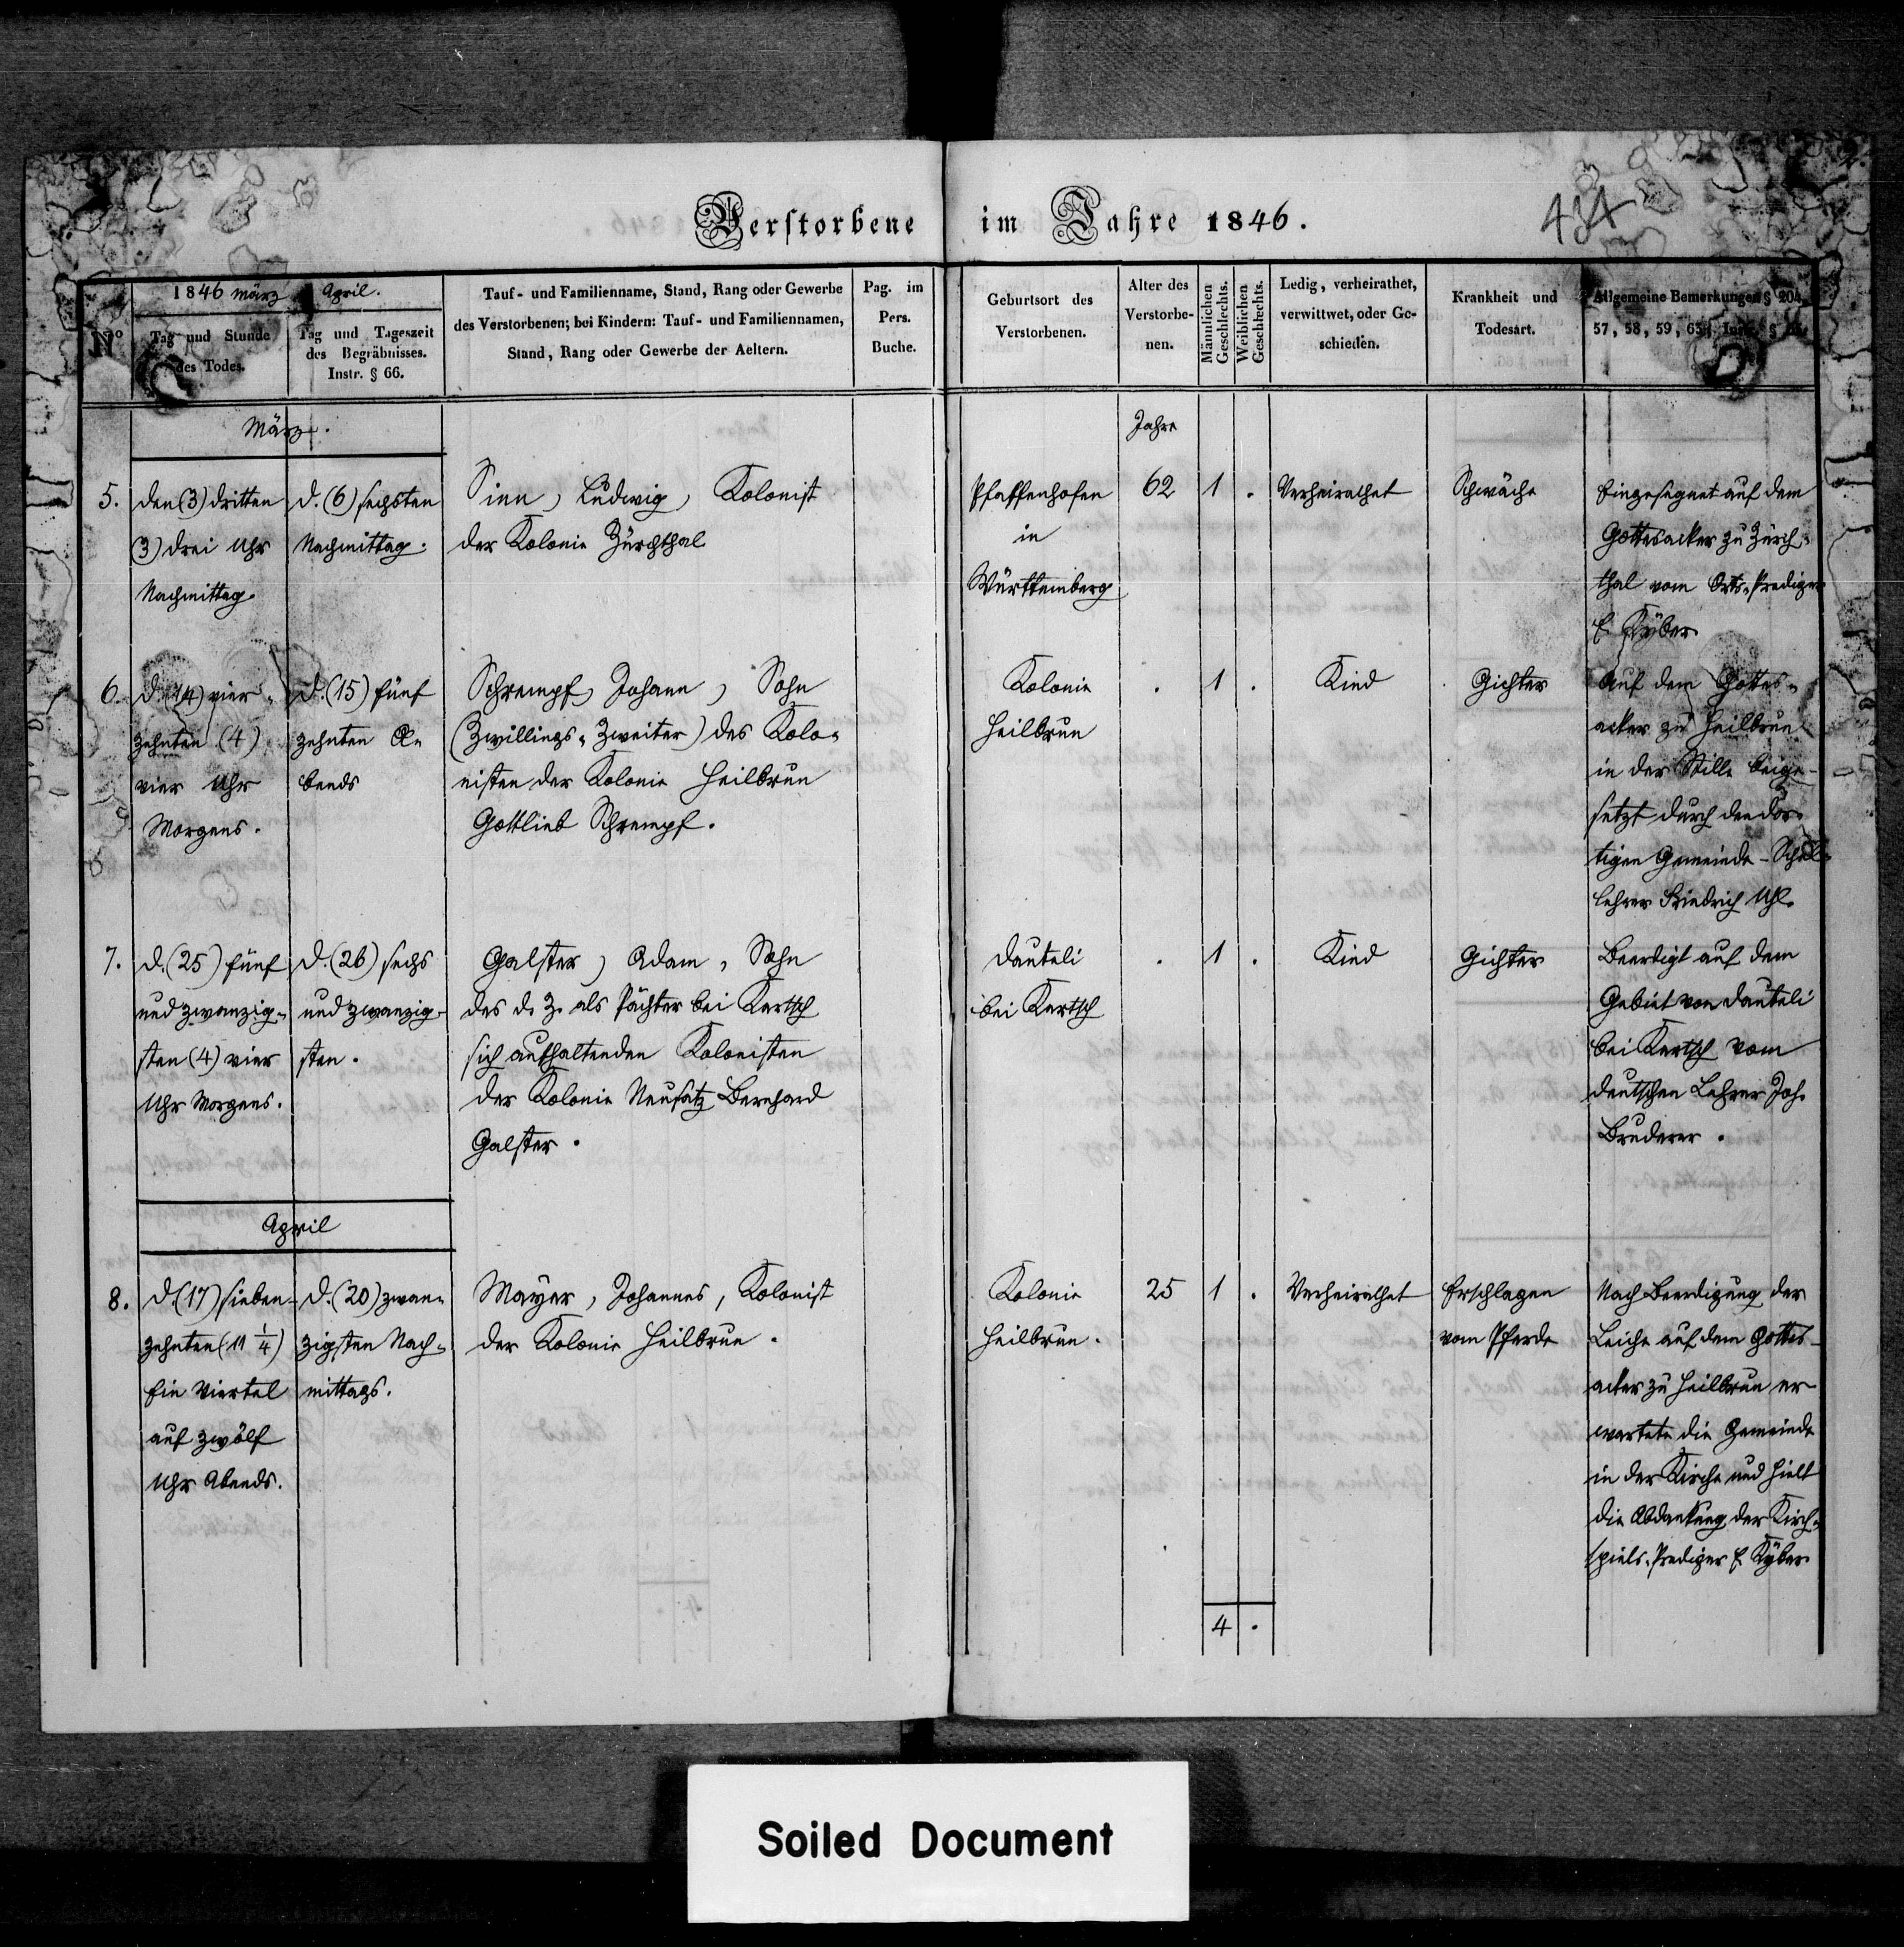 Verstorbene im Jahre 1846.
434
2.
1846 März April.
No
Tag und Stunde
des Todes.
Tag und Tageszeit
des Begräbnisses.
Instr. § 66.
Tauf- und Familienname, Stand, Rang oder Gewerbe
des Verstorbenen; bei Kindern: Tauf- und Familiennamen,
Stand, Rang oder Gewerbe der Aeltern.
Pag. im
Pers.
Buche.
Geburtsort des
Verstorbenen.
Alter des
Verstorbe-
nen.
Männlichen
Geschlechts.
Weiblichen
Geschlechts.
Ledig, verheirathet,
verwittwet, oder Ge-
schieden.
Krankheit und
Todesart.
Allgemeine Bemerkungen § 204
57, 58, 59, 63, Instr. §
März.
Jahre
5.
den (3) dritten
(3) drei Uhr
Nachmittag.
d. (6) sechsten
Nachmittag.
Sinn, Ludwig, Kolonist
der Kolonie Zürchthal
Pfaffenhofen
in
Württemberg
62
1
.
Verheirathet
Schwäche
Eingesegnet auf dem
Gottesacker zu Zürch-
thal vom Orts-Prediger
E. Kyber
6.
d. (14) vier-
zehnten (4)
vier Uhr
Morgens.
d. (15) fünf
zehnten A-
bends
Schrempf, Johann, Sohn
(Zwillings-Zweiter) des Kolo-
nisten der Kolonie Heilbrun
Gottlieb Schrempf.
Kolonie
Heilbrun
.
1
.
Kind
Gichter
Auf dem Gottes-
acker zu Heilbrun
in der Stille beige-
setzt durch den dor-
tigen Gemeinde-Schul-
lehrer Friedrich Uhl.
7.
d. (25) fünf
und zwanzig-
sten (4) vier
Uhr Morgens.
d. (26) sechs
und zwanzig-
sten.
Galster, Adam, Sohn
des d. Z. als Pächter bei Kertsch
sich aufhaltenden Kolonisten
der Kolonie Neusatz Bernhard
Galster.
Dauteli
bei Kertsch
.
1
.
Kind
Gichter
Beerdigt auf dem
Gebiet von Dauteli
bei Kertsch vom
deutschen Lehrer Joh.
Bruderer.
April
8.
d. (17) sieben-
zehnten (11 1/4)
Ein Viertel
auf zwölf
Uhr Abends.
d. (20) zwan-
zigsten Nach-
mittags.
Mayer, Johannes, Kolonist
der Kolonie Heilbrun.
Kolonie
Heilbrun.
25
1
.
Verheirathet
Erschlagen
vom Pferde
Nach Beerdigung der
Leiche auf dem Gottes-
acker zu Heilbrun er-
wartete die Gemeinde
in der Kirche und hielt
die Abdankung der Kirch-
spiels-Prediger E. Kyber
4
.
Soiled Document